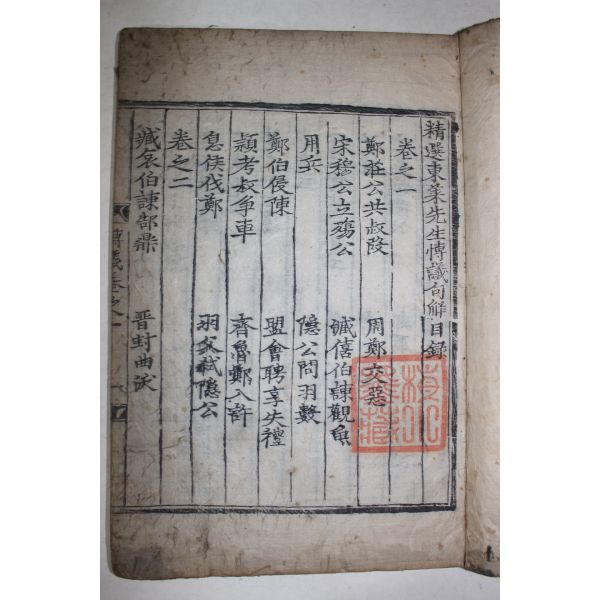 精選東萊先生博議句解目録
卷之一
鄭莊公共叔段 周鄭交惡
宋穆公立殤公 臧僖伯諫觀魚
用兵 隱公問羽數
鄭伯侵陳 盟會聘享失禮
穎考叔争車 齊魯鄭入許
息侯伐鄭 羽父弑隱公
卷之二
臧哀伯諫郜鼎 晋封曲沃